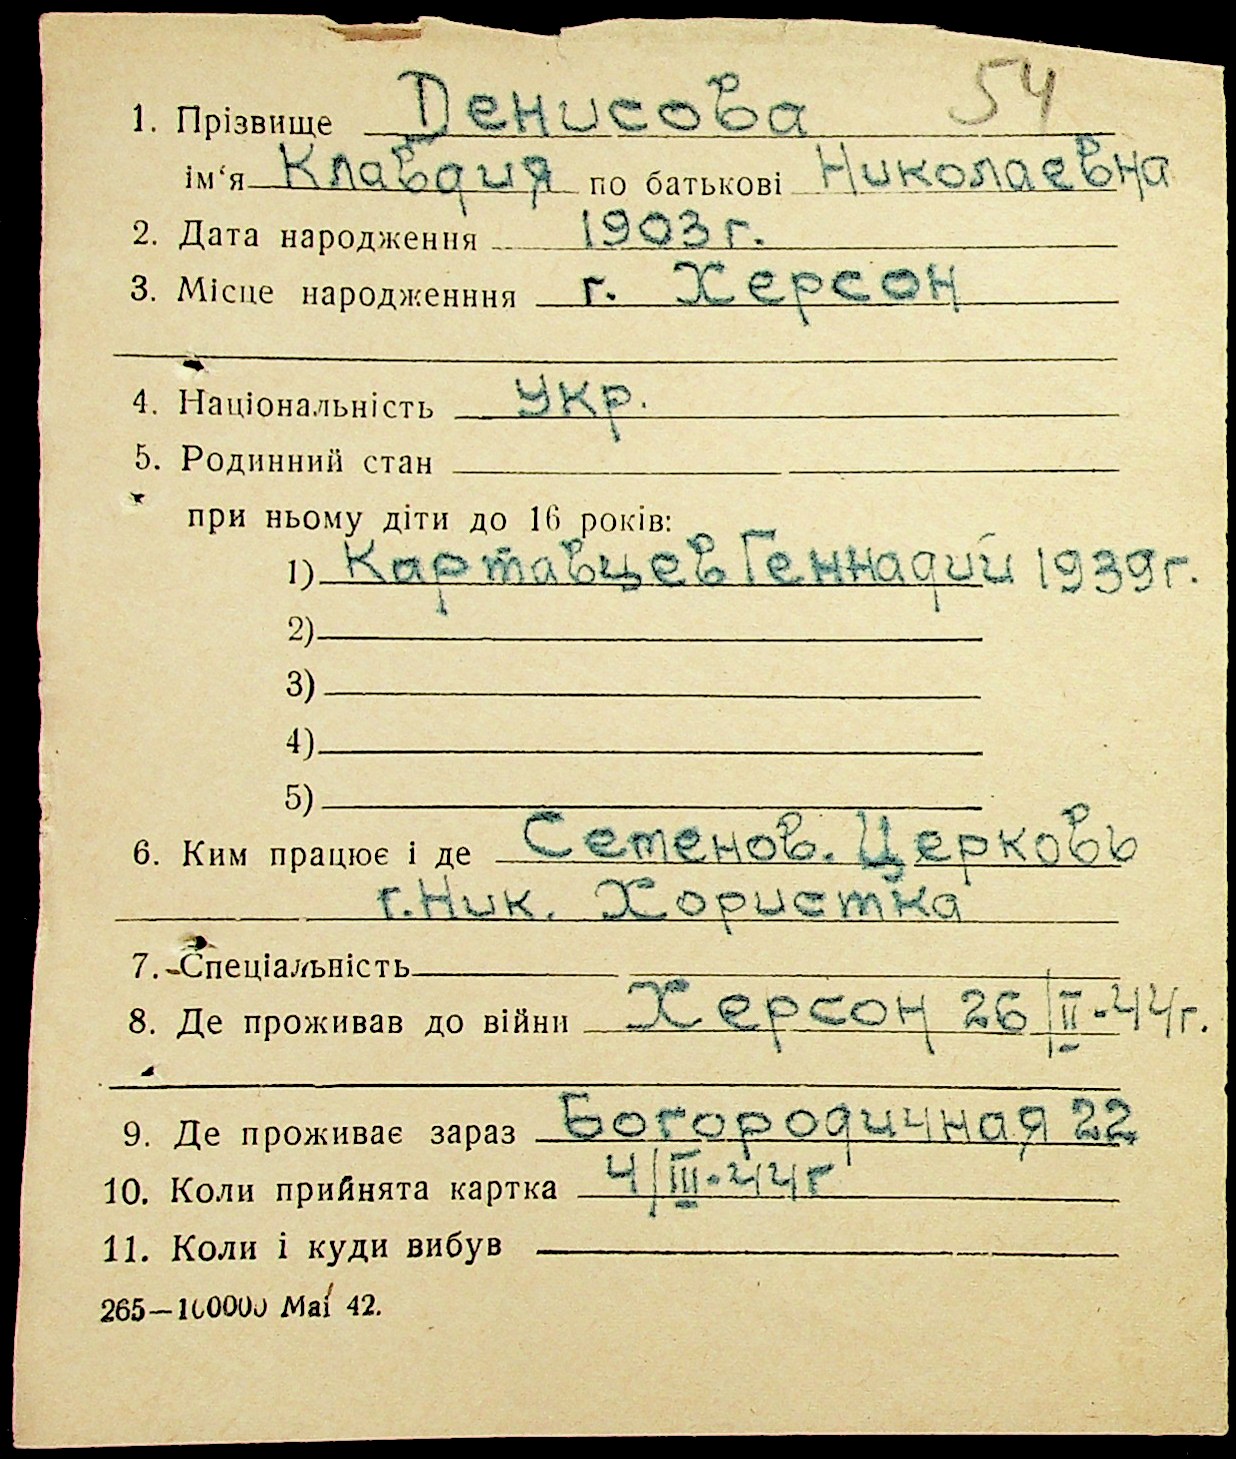 54
1. Прізвище Денисова
ім‘я Клавдия по батькові Николаевна
2. Дата народження 1903 г.
3. Місце народженння г. Херсон
4. Національність Укр.
5. Родинний стан
при ньому діти до 16 років:
1) Картавцев Геннадий 1939 г.
2)
3)
4)
5)
6. Ким працює і де Семенов. Церковь
г. Ник. Хористка
7. Спеціальність
8. Де проживав до війни Херсон 26/II-44г.
9. Де проживає зараз Богородичная 22
10. Коли прийнята картка 4/III-44г
11. Коли і куди вибув
265—100000 Маі 42.